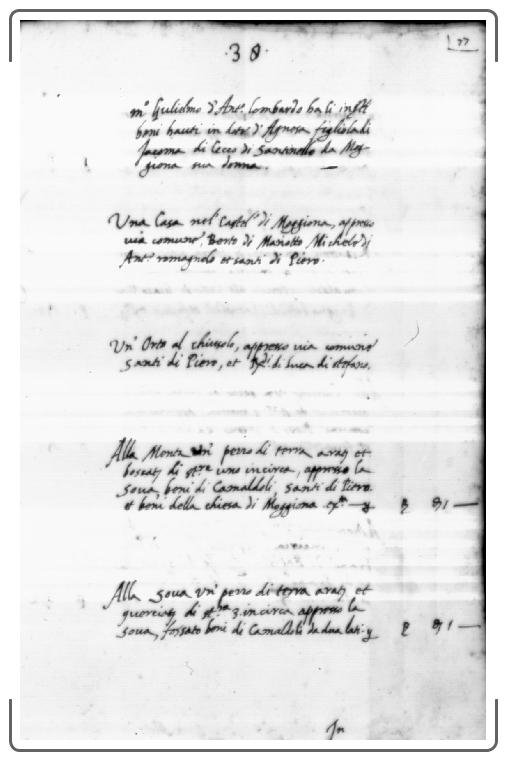 .38.
77
mº Gulielmo d'Antº lombardo ha li infti
boni hauti in dote d'Agnesa figliola di
Jacoma di Cecco di Santinello da Mog-
giona sua donna. —
Una Casa nel Castelº di Moggiona, appresso
via comune, Berto di Mariotto Michele di
Antº romagnolo et santi di Piero.
Un' Orto al chiusolo, appresso via comune
Santi di Piero, et di Luca di stefano.
Alla Monta un' pezzo di terra arat et
boscat di stre uno incirca, appresso la
Soua boni di Camaldoli Santi di Piero
et boni della chiesa di Moggiona
Alla Soua un' pezzo di terra arat et
querciat di stra 3. incirca appresso la
Soua, fossato boni di Camaldoli da dua lati
In